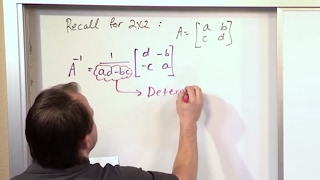 Recall for 2x2: A = [a b
c d]
A⁻¹ = 1/(ad-bc) [d -b
-c a]
Deter